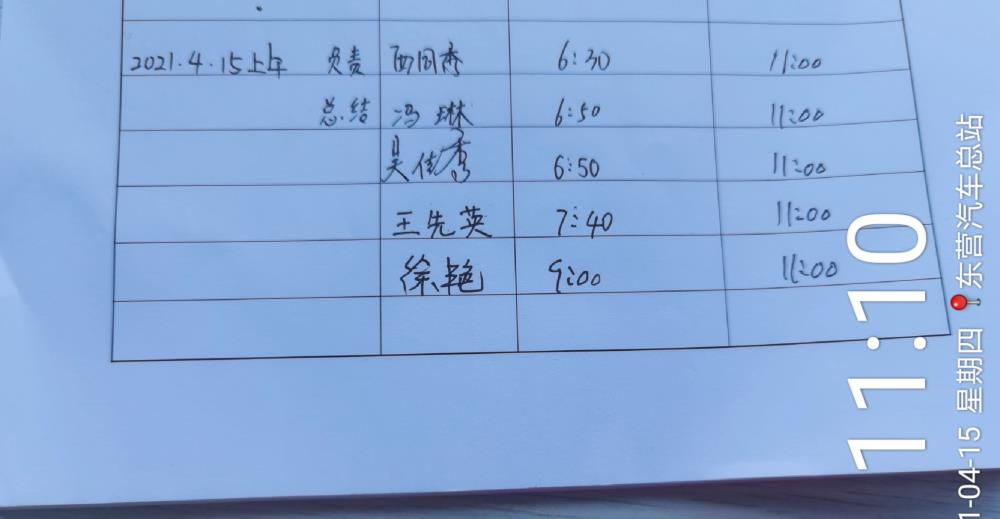 2021.4.15上午 负责 西同秀 6:30 11:00
总结 冯琳 6:50 11:00
吴佳秀 6:50 11:00
王先英 7:40 11:00
徐艳 9:00 11:00
11:10
1-04-15 星期四 东营汽车总站